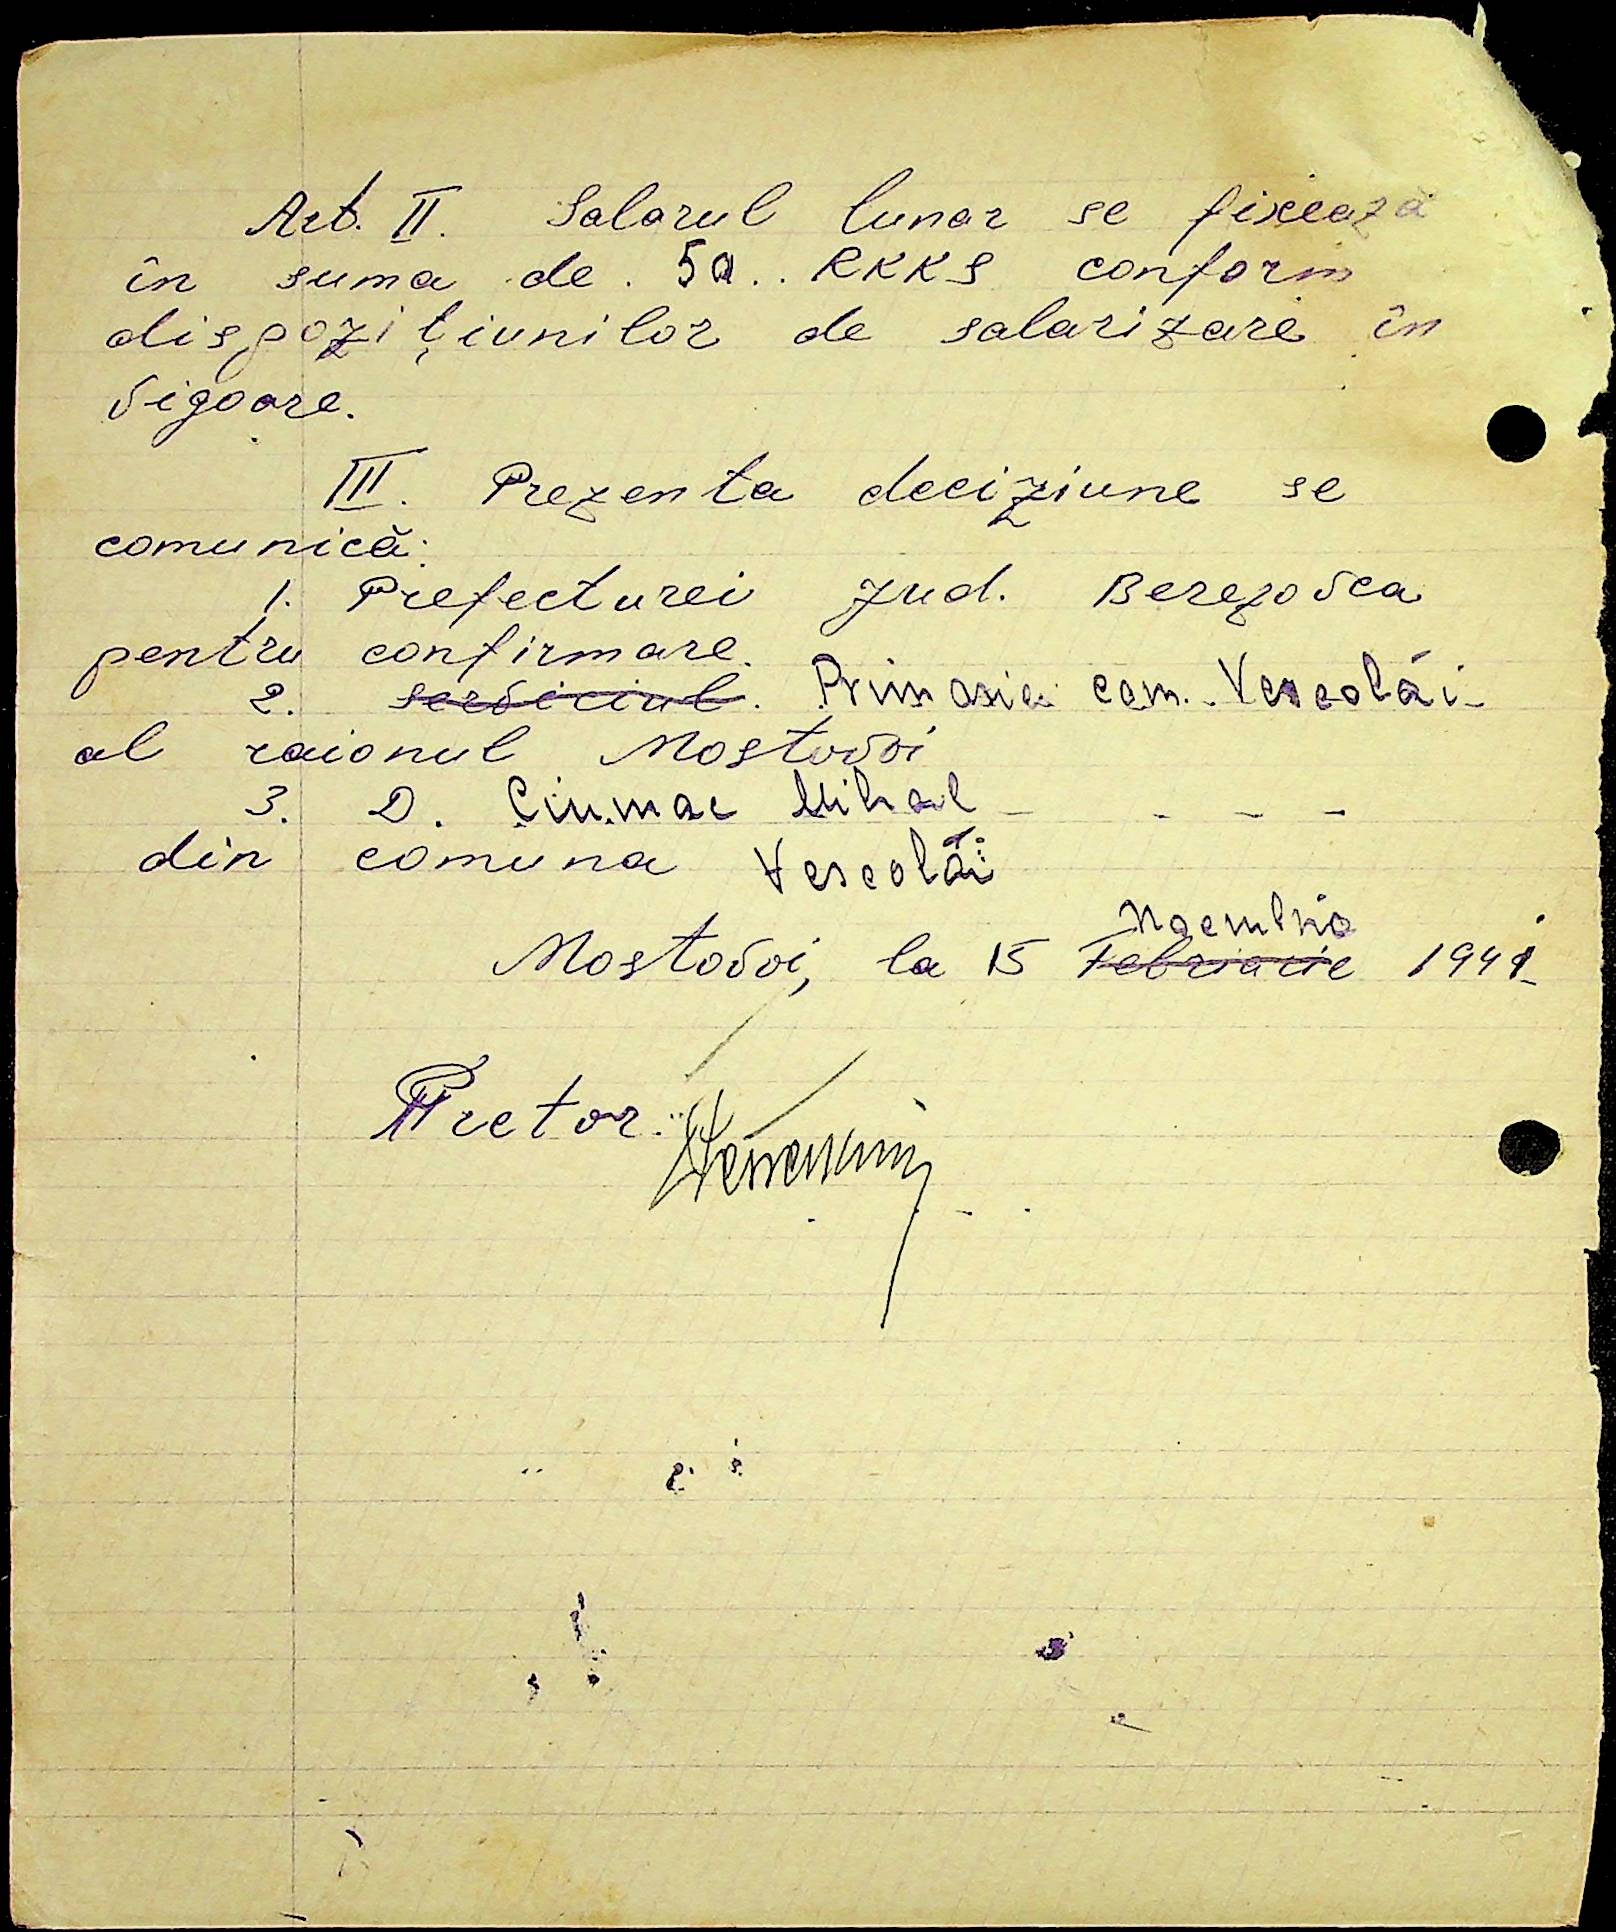 Art. II. Salarul lunar se fixează
în suma de . 50 .. RKKS conform
dispozițiunilor de salarizare în
vigoare.
III. Prezenta deciziune se
comunică:
1. Prefecturei Jud. Berezovca
pentru confirmare.
2. serviciul. Primaria com. Veseolâi -
al raionul Mostovoi
3. D. Ciumac Mihail - - - -
din comuna Veseolâi
Noembrie
Mostovoi, la 15 Februarie 1941
Pretor: